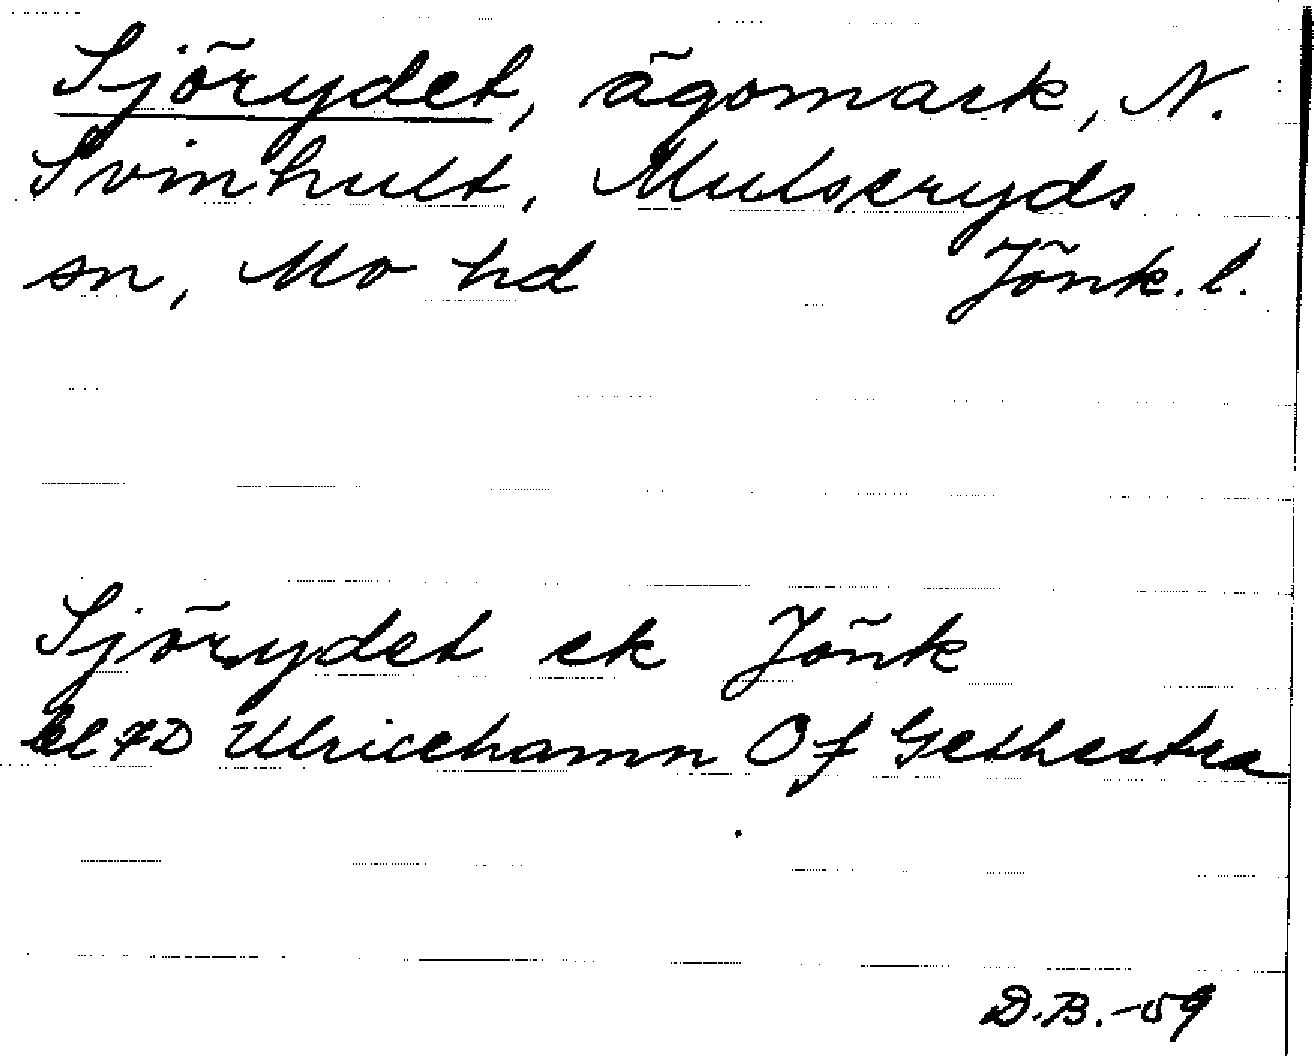 Sjörydet, ägomark, N.
Svinhult, Mulseryds
sn, Mo hd Jönk. l.
Sjörydet ek Jönk
Ulricehamn Of Gethestra
D.B. -59